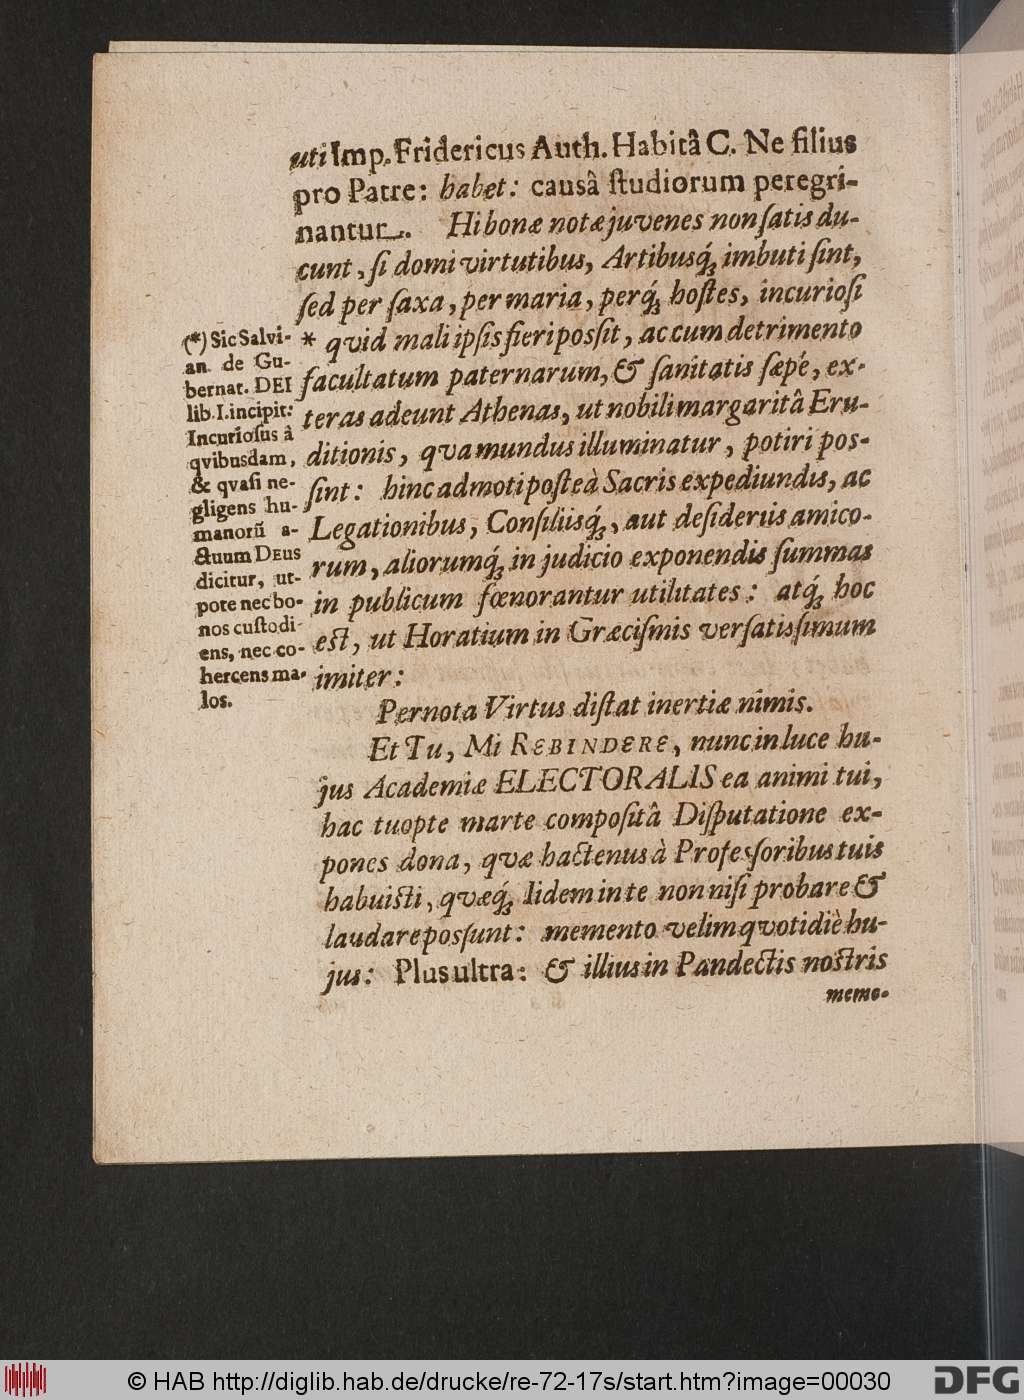 uti Imp. Fridericus Auth. Habitâ C. Ne filius
pro Patre: habet: causâ ſtudiorum peregri-
nantur. Hi bonæ notæ juvenes non ſatis du-
cunt, ſi domi virtutibus, Artibusq́ꝫ imbuti ſint,
ſed per ſaxa, per maria, perq́ꝫ hoſtes, incurioſi
* quid mali ipſis fieri poſſit, ac cum detrimento
facultatum paternarum, & ſanitatis ſæpè, ex-
teras adeunt Athenas, ut nobili margaritâ Eru-
ditionis, qva mundus illuminatur, potiri pos-
ſint: hinc admoti poſteà Sacris expediundis, ac
Legationibus, Conſiliisq́ꝫ, aut deſideriis amico-
rum, aliorumq́ꝫ in judicio exponendis ſummas
in publicum fœnorantur utilitates: atq́ꝫ hoc
eſt, ut Horatium in Græciſmis verſatisſimum
imiter:
(*) Sic Salvi-
an. de Gu-
bernat. DEI
lib. I. incipit:
Incurioſus à
qvibusdam,
& qvaſi ne-
gligens hu-
manorũ a-
ctuum DEUS
dicitur, ut-
pote nec bo-
nos cuſtodi-
ens, nec co-
hercens ma-
los.
Pernota Virtus diſtat inertiæ nimis.
Et Tu, Mi REBINDERE, nunc in luce hu-
jus Academiæ ELECTORALIS ea animi tui,
hac tuopte marte compoſitâ Diſputatione ex-
pones dona, qvæ hactenus à Profesſoribus tuis
habuiſti, qvæq́ꝫ Iidem in te non niſi probare &
laudare posſunt: memento velim qvotidiè hu-
jus: Plus ultra: & illius in Pandectis noſtris
memo-
© HAB http://diglib.hab.de/drucke/re-72-17s/start.htm?image=00030
DFG